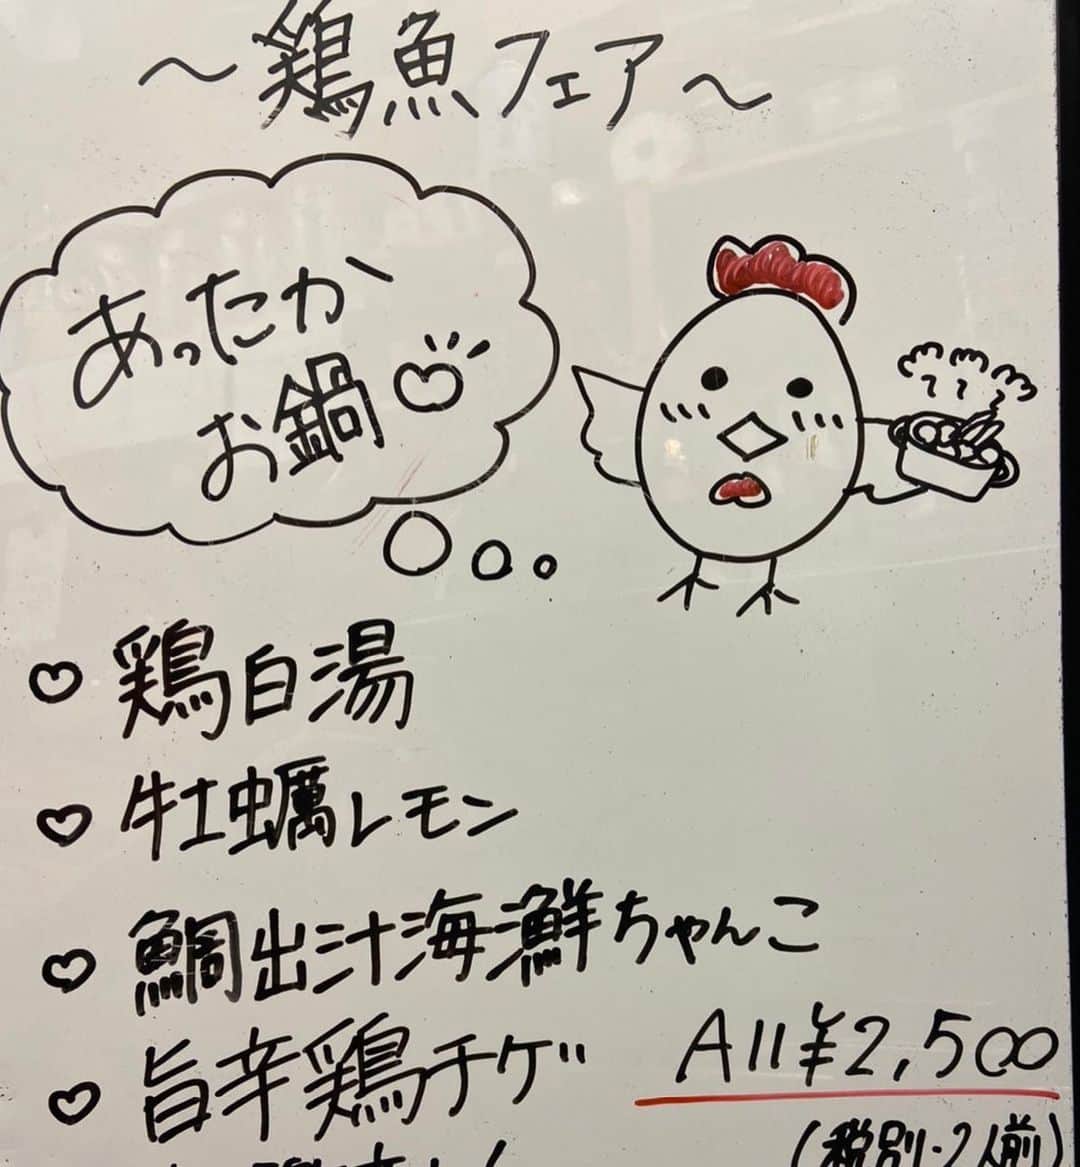 ～鶏魚フェア～
あったか
お鍋
鶏白湯
牡蠣レモン
鯛出汁海鮮ちゃんこ
旨辛鶏チゲ
All¥2,500
(税別・2人前)